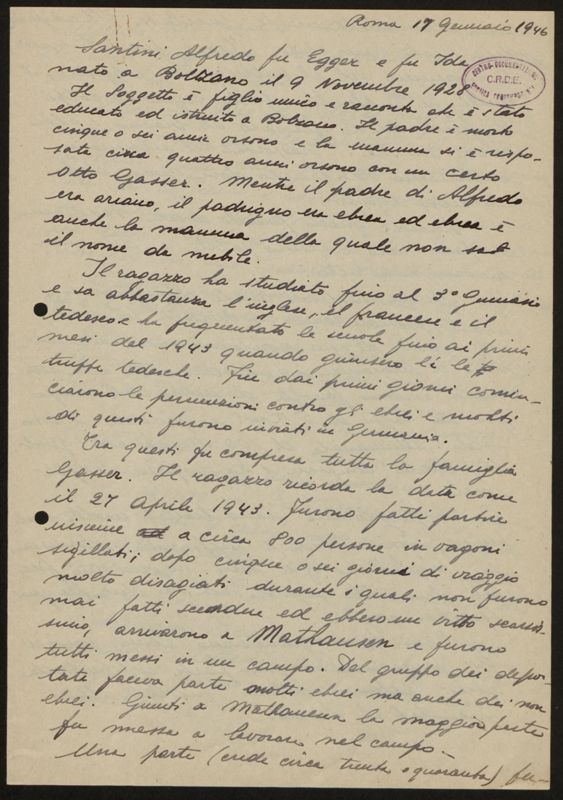 Roma 17 Gennaio 1946
Santini Alfredo fu Egger e fu Ide
nato a Bolzano il 9 Novembre 1928
CENTRO DOCUMENTAZIONE
C.R.D.E.
Il Soggetto è figlio unico e racconta che è stato
educato ed istruito a Bolzano. Il padre è morto
cinque o sei anni orsono e la mamma si è rispo-
sata circa quattro anni orsono con un certo
Otto Gasser. Mentre il padre di Alfredo
era ariano, il padrigno era ebreo ed ebrea è
anche la mamma della quale non sa
il nome da nubile.
Il ragazzo ha studiato fino al 3° Ginnasio
e sa abbastanza l'inglese, il francese e il
tedesco e ha frequentato le scuole fino ai primi
mesi del 1943 quando giunsero lì le
truppe tedesche. Fin dai primi giorni comin-
ciarono le persecuzioni contro gli ebrei e molti
di questi furono inviati in Germania.
Tra questi fu compresa tutta la famiglia
Gasser. Il ragazzo ricorda la data come
il 27 Aprile 1943. Furono fatti partire
insieme a circa 800 persone in vagoni
sigillati; dopo cinque o sei giorni di viaggio
molto disagiati durante i quali non furono
mai fatti scendere ed ebbero un vitto scarsis-
simo, arrivarono a Mathausen e furono
tutti messi in un campo. Del gruppo dei depor-
tati faceva parte molti ebrei ma anche dei non
ebrei. Giunti a Mathausen la maggior parte
fu messa a lavorare nel campo.
Una parte (circa trenta o quaranta) fu-